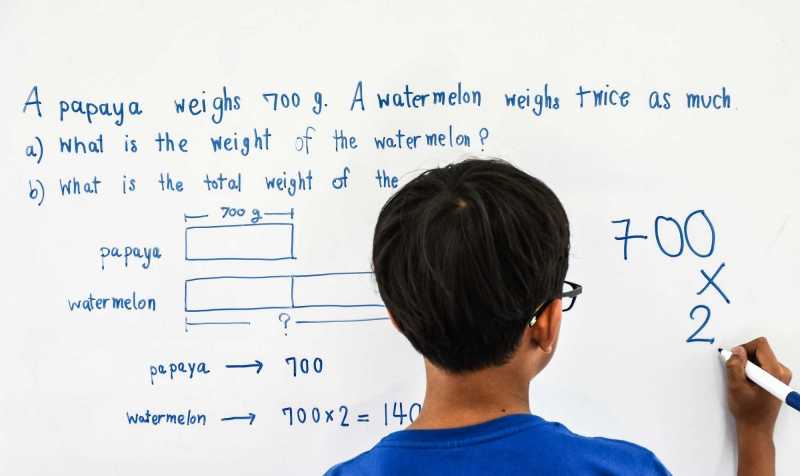 A papaya weighs 700 g. A watermelon weighs twice as much.
a) What is the weight of the watermelon?
b) What is the total weight of the
700 g
papaya
watermelon
?
papaya → 700
watermelon → 700x2 = 140
700
x
2